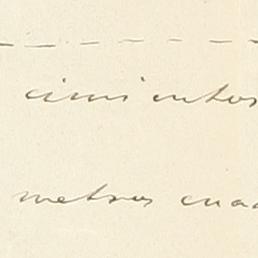 cimientos
metros cua